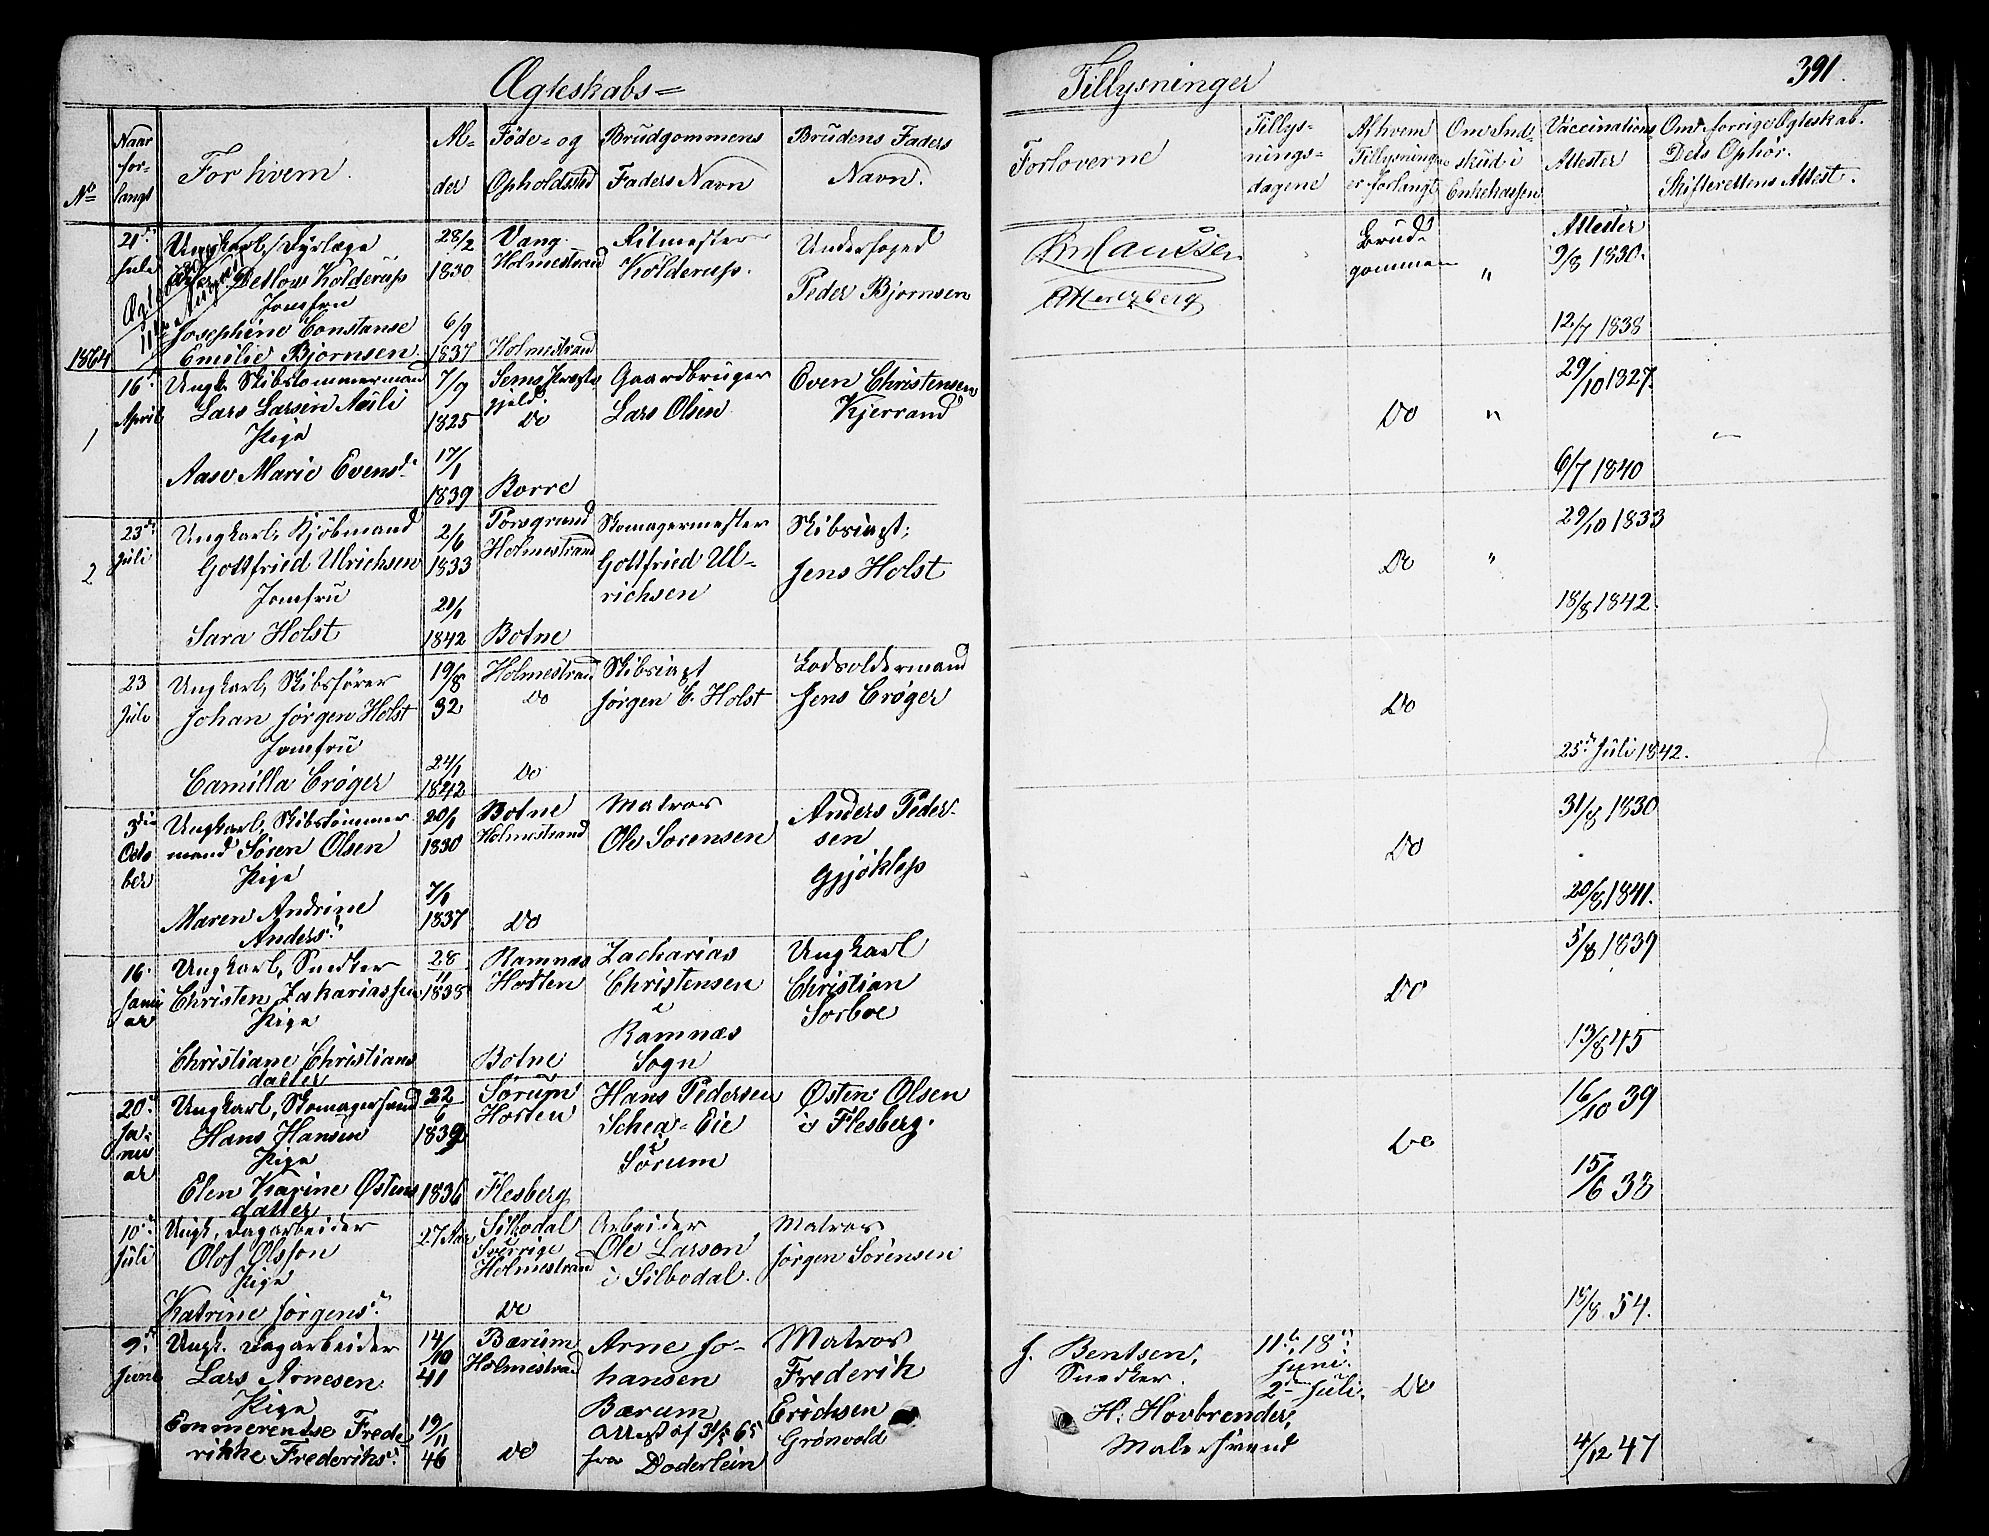 Ægteskabs=
Tillysninger
391.
No
Naar for-langt
For hvem.
Al-der
Føde- og Opholdssted
Brudgommens Faders Navn
Brudens Faders Navn.
Forloverne
Tillys-nings-dagene
Af hvem Tillysningen er forlangt
Om Ind-skud i Enkekassen
Vaccinations Attester
Om forrige Ægteskab. Dets Ophør. Skifterettens Attest.
21de Juli
Ungkarl, Dyrlæge
Detlow Kolderup
Jomfru
Josephine Constanse
Emilie Bjornsen.
28/2 1830
6/9 1837
Vang. Holmestrand
Holmestrand
Ritmester Kolderup.
Underfoged
Peder Bjornsen
Brud-gommen
"
Attester
9/8 1830.
12/7 1838
1864
1
16de April
Ungk. Skibstømmermand
Lars Larsen Auli
Pige
Aase Marie Evensd.
7/9 1825
17/1 1839
Sems Præste-gjeld.
Do
Borre
Gaardbruger
Lars Olsen
Even Christensen
Kjerrand
Do
"
29/10 1827
6/7 1840
2
23de Juli
Ungkarl, Kjöbmand
Gottfried Ulrichsen
Jomfru
Sara Holst
2/6 1833
21/1 1842
Porsgrund
Holmestrand
Botne
Skomagermester
Gottfried Ul-
richsen
Skibsiagt,
Jens Holst
Do
"
29/10 1833
18/8 1842.
23 Juli
Ungkarl, Skibsfører
Johan Jørgen Holst
Jomfru
Camilla Crøger
19/8 32
24/1 1842
Holmestrand
Do
Do
Skibsiagt
Jørgen C. Holst
Lodsoldermand
Jens Crøger
Do
25de Juli 1842.
3die Octo ber
Ungkarl, Skibstømmer
mand Søren Olsen
Pige
Maren Andrine
Anders.
20/1 1830
7/1 1837
Botne
Holmestrand
Do
Matros
Ole Sorensen
Anders Peder-
sen
Gjøklep
Do
31/8 1830
20/8 1841.
16. Janu ar
Ungkarl, Snedker
Christen Zakariassen
Pige
Christiane Christians
datter
28/11 1838
Ramnæs
Horten
Botne
Zacharias
Christensen
i
Ramnæs
Sogn
Ungkarl
Christian
Sorboe
Do
5/8 1839
13/8 45
20de Ja-nu ar
Ungkarl, Skomagersvend
Hans Hansen
Pige
Elen Karine Østens
datter
22/6 1839
1836
Sørum
Horten
Flesberg
Hans Pedersen
Schea-Eie
i
Sørum
Østen Olsen
i Flesberg.
Do
16/10 39
15/6 38
10de Juli
Ungk. Dagarbeider
Olof Olsson
Pige
Katrine Jørgens.
27 Aar
Silbodal
Sverrige
Holmestrand
Do
Arbeider
Ole Larson
i Silbodal.
Matros
Jørgen Sorensen
18/8 54.
9de Juni
Ungk. Dagarbeider
Lars Arnesen
Pige
Emmerentse Frede
rikke Frederiks.
14/10 41
19/11 46
Bærum
Holmestrand
Do
Arne Jo-
hansen
Bærum
Attest af 31/5 65
fra Doderlein
Matros
Frederik
Erichsen
Grønvold
J. Bentsen,
Snedker.
H. Hovbrender,
Malersvend
11te, 18de Juni.
2den Juli.
Do
4/12 47